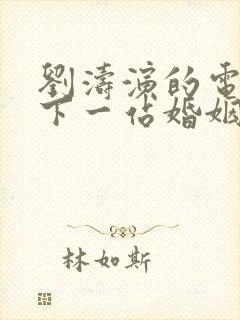 劉濤演的電
下一佔婚姻
林如斯